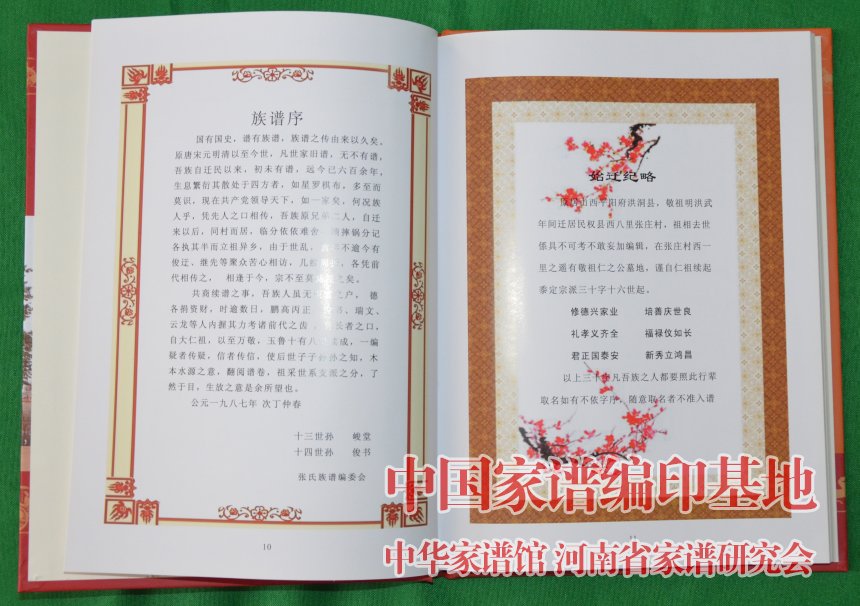 族谱序
国有国史，谱有族谱，族谱之传由来以久矣。
原唐宋元明清以至今世，凡世家旧谱，无不有谱，
吾族自迁民以来，初未有谱，远今已六百余年，
生息繁衍其散处于四方者，如星罗棋布，多至而
莫识，现在共产党领导天下，如一家矣，何况族
人乎，凭先人之口相传，吾族原兄弟二人，自迁
来以后，同村而居，临分依依难舍 摔锅分记
各执其半而立祖异乡，由于世乱， 不逾今有
俊迁、继先等聚众苦心相访，几 各凭前
代相传之， 相逢于今，宗不至莫 之矣。
共商续谱之事，吾族人虽无 之户， 德
各捐资财，时逾数日，鹏高丙正 书、瑞文、
云龙等人内握其力考诸前代之齿 长者之口，
自大仁祖，以至万敬，玉鲁十有八 成，一编
疑者传疑，信者传信，使后世子子孙孙之知，木
本水源之意，翻阅谱卷，祖采世系支派之分，了
然于目，生放之意是余所望也。
公元一九八七年 次丁仲春
十三世孙 峻堂
十四世孙 俊书
张氏族谱编委会
10
始迁纪略
山西平阳府洪洞县，敬祖明洪武
年间迁居民权县西八里张庄村，祖相去世
係具不可考不敢妄加编辑，在张庄村西一
里之遥有敬祖仁之公墓地，谨自仁祖续起
泰定宗派三十字十六世起。
修德兴家业 培善庆世良
礼孝义齐全 福禄仪如长
君正国泰安 新秀立鸿昌
以上三十字凡吾族之人都要照此行辈
取名如有不依字序，随意取名者不准入谱
11
中国家谱编印基地
中华家谱馆 河南省家谱研究会